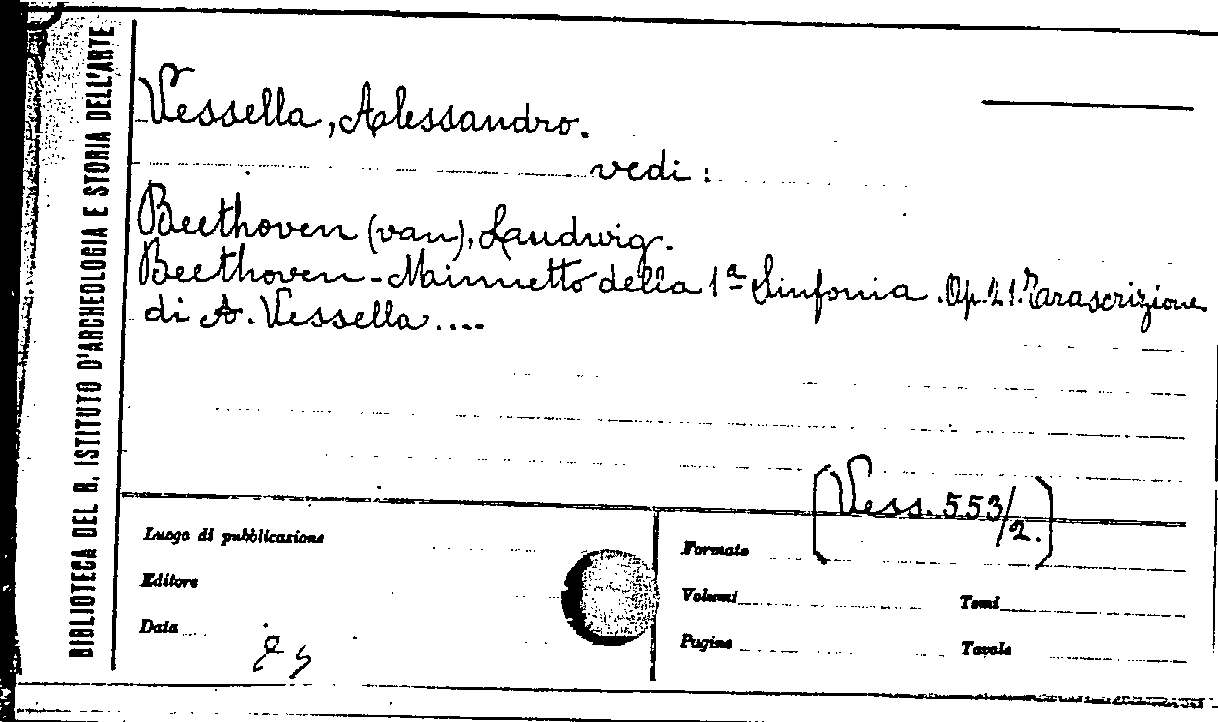 BIBLIOTECA DEL R. ISTITUTO D'ARCHEOLOGIA E STORIA DELL'ARTE
Vessella, Alessandro.
vedi:
Beethoven (van), Laudwig.
Beethoven - Minuetto della 1ª Sinfonia. Op. 21. Trascrizione
di A. Vessella....
(Vess. 553/2.)
Luogo di pubblicazione
Editore
Data
Formato
Volumi Tomi
Pagine Tavole